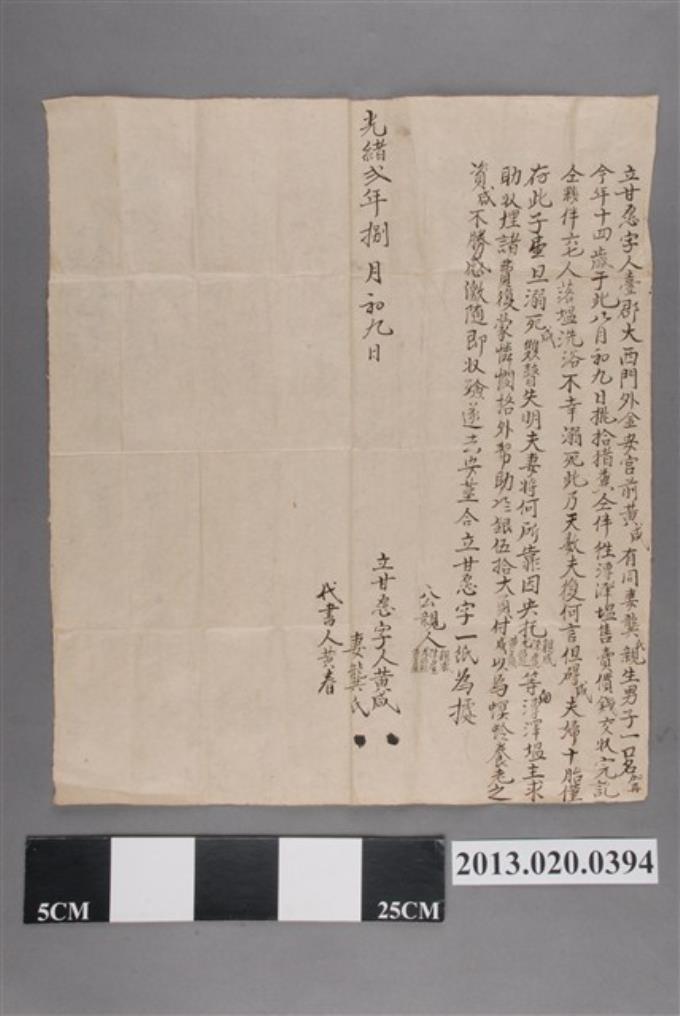 立甘愿字人臺郡大西門外金安宮前黃咸有同妻龔氏親生男子一口名
今年十四歲于此八月初九日擺拾 仝伴 漳澤塭售賣價錢交收完訖
仝夥伴六七人落塭洗浴不幸溺死此乃天數夫復何言但碍咸夫婦十胎僅
存此子壹旦溺死咸雙瞽失明夫妻將何所靠因央托 等向漳澤塭主求
助收埋諸費復蒙憐憫格外幫助 銀伍拾大員付咸以為螟蛉養老之
資咸不勝感激隨即收殮 安葬合立甘愿字一紙為據
公親人
立甘愿字人黃咸
妻龔氏
代書人黃春
光緒弍年捌月初九日
5CM
25CM
2013.020.0394